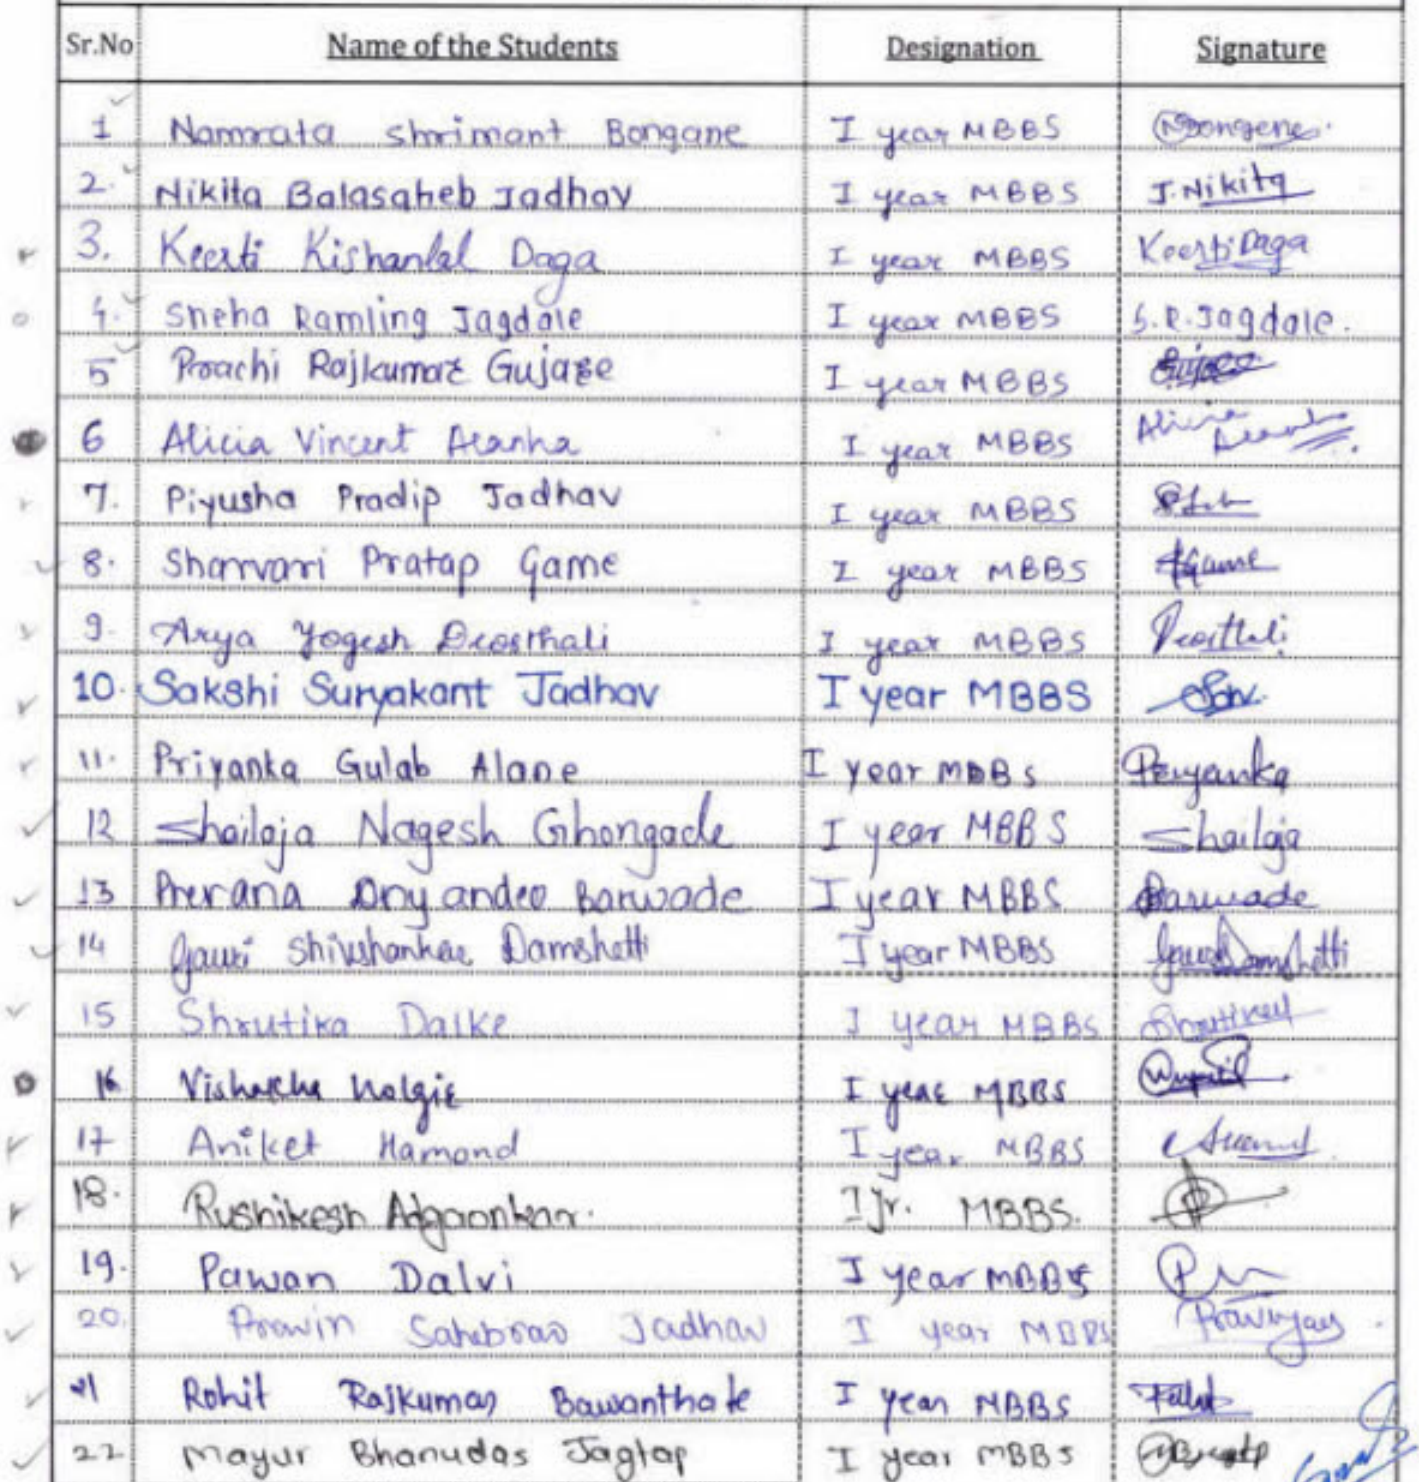 Sr.No Name of the Students Designation Signature
1 Namrata Shrimant Bongane I year MBBS
2. Nikita Balasaheb Jadhav I year MBBS J.Nikita
3. Keerti Kishanlal Daga I year MBBS Keerti Daga
4. Sneha Ramling Jagdale I year MBBS S.R.Jagdale.
5 Prachi Rajkumar Gujare I year MBBS
6 Alicia Vincent Aranha I year MBBS Alicia
7. Piyusha Pradip Jadhav I year MBBS
8. Sharvari Pratap Game I year MBBS Game
9. Arya Yogesh Deosthali I year MBBS Deosthali
10. Sakshi Suryakant Jadhav I year MBBS
11. Priyanka Gulab Alane I year MBBS Priyanka
12 Shailaja Nagesh Ghongade I year MBBS Shailaja
13 Prerana Dnyandeo Barwade I year MBBS Barwade
14 Gauri Shivshankar Damshetti I year MBBS Gauri Damshetti
15 Shrutika Dalke I year MBBS
16 I year MBBS
17 Aniket Hamand I year MBBS
18. Rushikesh Adgaonkar. I yr. MBBS.
19. Pawan Dalvi I year MBBS
20. Pravin Sahebrao Jadhav I year MBBS
21 Rohit Rajkumar I year MBBS
22 Mayur Bhanudas Jagtap I year MBBS